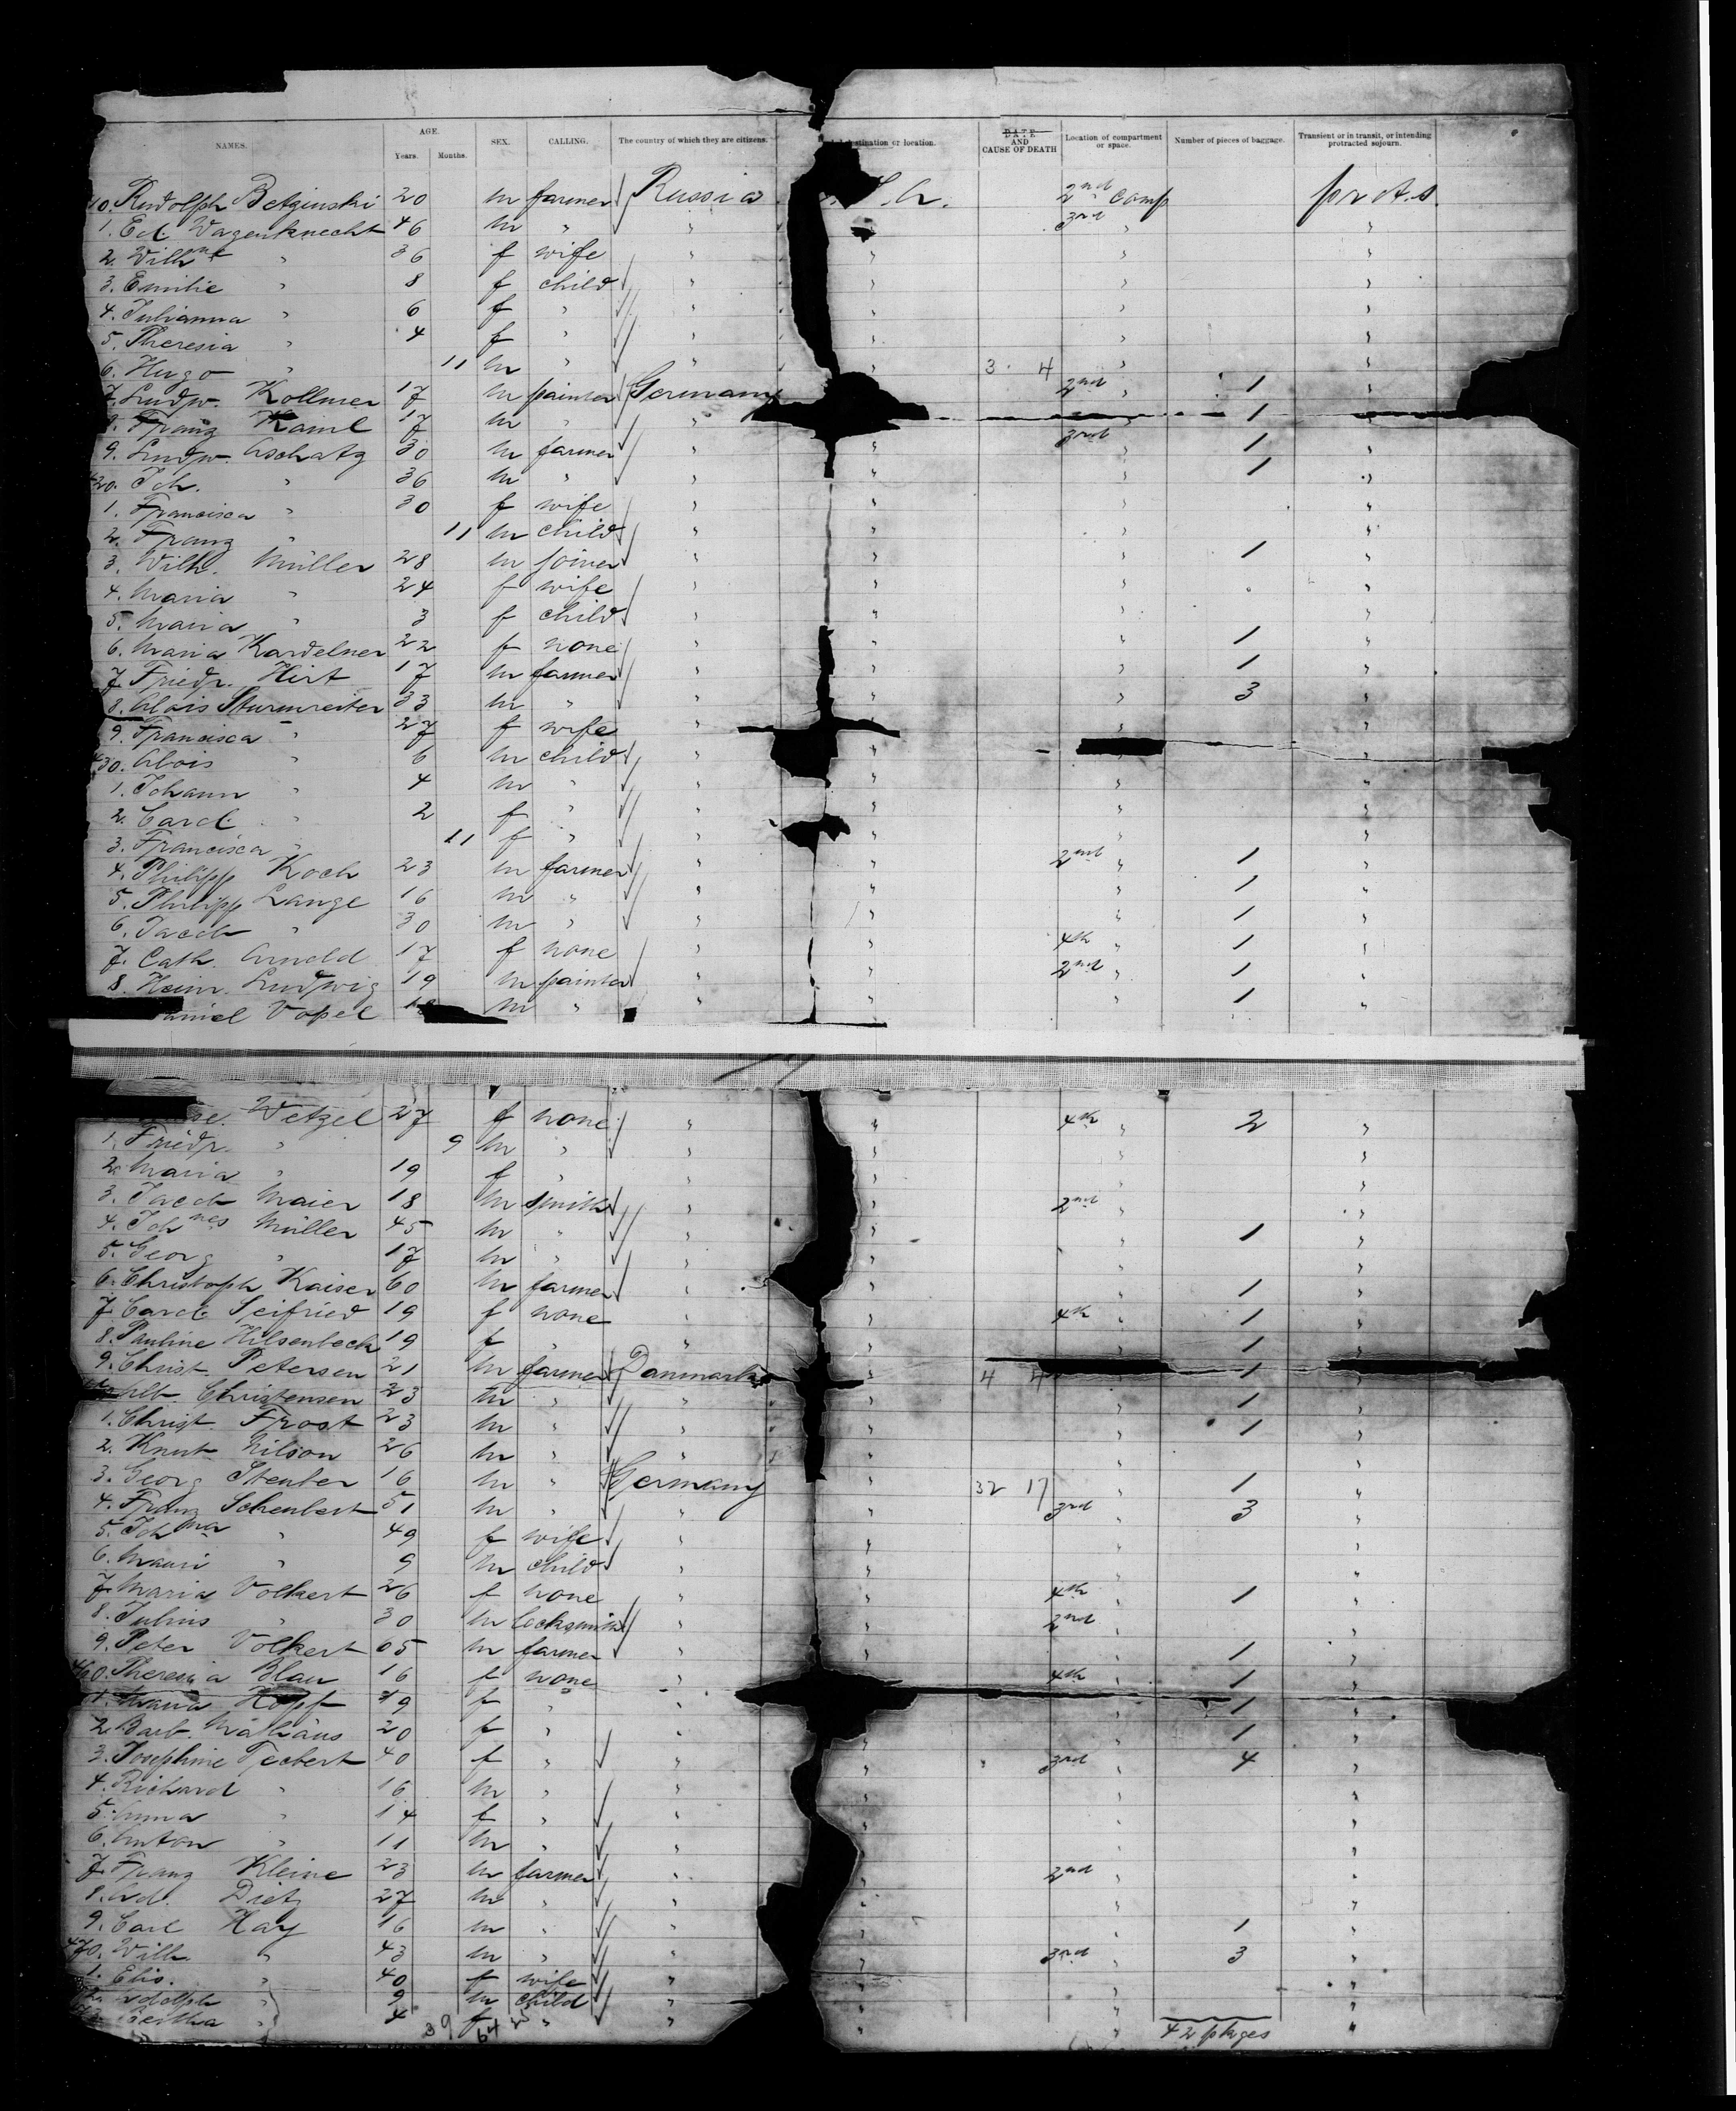 NAMES. AGE. Years. Months. SEX. CALLING. The country of which they are citizens. destination or location. DATE AND CAUSE OF DEATH Location of compartment or space. Number of pieces of baggage. Transient or in transit, or intending protracted sojourn.
10. Rudolph 20 m farmer Russia 2nd Comp
1. Ed. Wagenknecht 46 m " " 3rd "
2. Wilhne " 36 f wife " " " "
3. Emilie " 8 f child " " " "
4. Julianna " 6 f " " " " "
5. Theresia " 4 f " " " " "
6. Hugo " 11 m " " " 3 4 " "
7. Ludw. Kollmer 17 m painter Germany 2nd " 1 "
8. Franz Kaml 17 m " " " 1
9. Ludw. Aschatz 30 m farmer " " 3rd 1 "
420. Joh. " 36 m " " " 1 "
1. Francisca " 30 f wife " " " "
2. Franz " 11 m child " " " "
3. Wilh. Müller 28 m joiner " " " 1 "
4. Maria " 24 f wife " " " "
5. Maria " 3 f child " " " "
6. Maria Kardelner 22 f none " " " 1 "
7. Friedr. Hirt 17 m farmer " " " 1 "
8. Alois Sturmreiter 33 m " " " " 3 "
9. Francisca " 27 f wife " " "
430. Alois " 6 m child " " "
1. Johann " 4 m " " " " "
2. Carol. " 2 f " " " " "
3. Francisca " 11 f " " " " "
4. Philipp Koch 23 m farmer " " 2nd " 1 "
5. Philipp Lange 16 m " " " " 1 "
6. Jacob " 30 m " " " " 1 "
7. Cath. Arnold 17 f none " " 4th " 1 "
8. Heinr. Ludwig 19 m painter " " 2nd " 1 "
Vopel m " " " " 1 "
Wetzel 27 f none " " 4th " 2 "
1. Friedr. " 9 m " " " " "
2. Maria " 19 f " " " " "
3. Jacob Maier 18 m smith " " 2nd " "
4. Johnes Müller 45 m " " " " 1 "
5. Georg " 17 m " " " " "
6. Christoph Kaiser 60 m farmer " " " 1 "
7. Carol. Seifried 19 f none " " 4th " 1 "
8. Pauline Hilsenbeck 19 f " " " " 1 "
9. Christ. Petersen 21 m farmer Danmark " 4 4 1
Alb. Christensen 23 m " " " " 1 "
1. Christ. Frost 23 m " " " " 1 "
2. Knut Nilson 26 m " " " " "
3. Georg Steuber 16 m " Germany " 32 17 " 1 "
4. Franz Schenbert 51 m " " " 3rd " 3 "
5. Johna " 49 f wife " " " "
6. Mauri " 9 m child " " " "
7. Maria Volkert 26 f none " " 4th " 1 "
8. Julius " 30 m locksmith " " 2nd " "
9. Peter Volkert 65 m farmer " " " 1 "
460. Theresia Blau 16 f none " 4th " 1 "
1. Maria Hopf 19 f " " 1 "
2. Barb. Mathäus 20 f " " " " 1 "
3. Josephine Teobert 40 f " " " 3rd " 4 "
4. Richard " 16 m " " " " "
5. Anna " 14 f " " " " "
6. Anton " 11 m " " " " "
7. Franz Kleine 23 m farmer " " 2nd " "
8. Ad. Dietz 27 m " " " " "
9. Carl Hay 16 m " " " " 1 "
470. Wilh. " 43 m " " " 3rd " 3 "
1. Elis. " 40 f wife " " " "
Adolph " 9 m child " " " "
Bertha " 4 f " " " " "
39 64 42 pkges